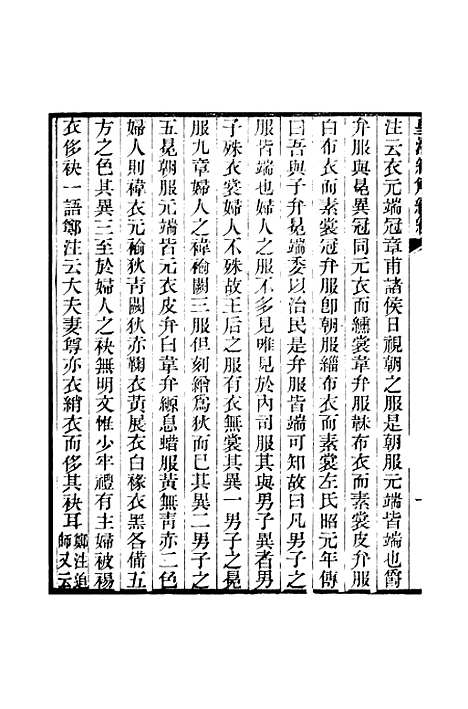 注云衣元端冠章甫諸侯日視朝之服是朝服元端皆端也爵
弁服與晃異冠同元衣而纁裳韋弁服韎布衣而素裳皮弁服
白布衣而素裳冠弁服卽朝服緇布衣而素裳左氏昭元年傳
曰吾與子弁晃端委以治民是弁服皆端可知故曰凡男子之
服皆端也婦人之服不多見唯見於內司服其與男子異者男
子殊衣裳婦人不殊故王后之服有衣無裳其異一男子之晃
服九章婦人之褘褕闕三服但刻繒爲狄而已其異二男子之
五晃朝服元端皆元衣皮弁白韋弁縓息蜡服黃無靑亦二色
婦人則褘衣元褕狄靑闕狄赤鞠衣黃展衣白褖衣黑各備五
方之色其異三至於婦人之袂無明文惟少牢禮有主婦被裼
衣侈袂一語鄭注云大夫妻尊亦衣綃衣而侈其袂耳鄭注追
師又云